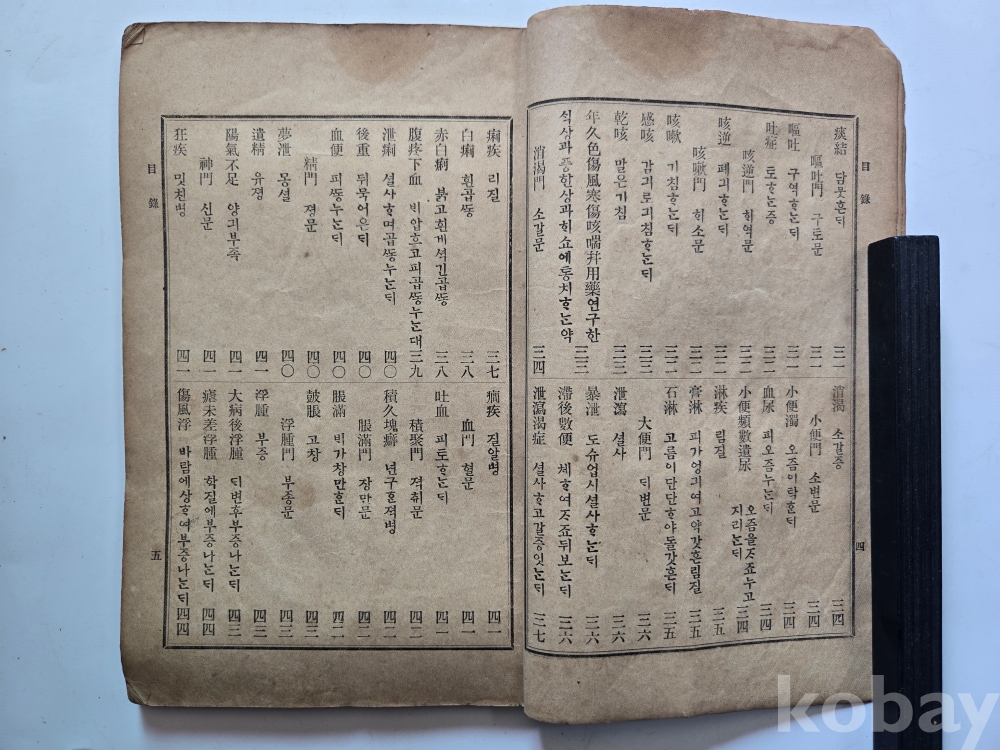 目錄
痰結 담뭇흔듸 三一
嘔吐門 구토문 三一
嘔吐 구역ᄒᆞᄂᆞᆫ듸 三一
吐症 토ᄒᆞᄂᆞᆫ증 三二
咳逆門 ᄒᆡ역문 三二
咳逆 폐긔ᄒᆞᄂᆞᆫ듸 三二
咳嗽門 ᄒᆡ소문 三二
咳嗽 기침ᄒᆞᄂᆞᆫ듸 三二
感咳 감긔로기침ᄒᆞᄂᆞᆫ듸 三三
乾咳 말은기침 三三
年久色傷風寒傷咳喘幷用藥 연구한
식상과풍한상과ᄒᆡ쇼에통치ᄒᆞᄂᆞᆫ약 三三
消渴門 소갈문 三四
消渴 소갈증 三四
小便門 소변문 三四
小便濁 오좀이탁ᄒᆞᆫ듸 三四
血尿 피오좀누ᄂᆞᆫ듸 三四
小便頻數遺尿 오좀을ᄌᆞ죠누고
지리ᄂᆞᆫ듸 三四
淋疾 림질 三五
膏淋 피가엉긔여고약갓흔림질 三五
石淋 고름이단단ᄒᆞ야돌갓흔듸 三五
大便門 듸변문 三六
泄瀉 셜사 三六
暴泄 도슈업시셜사ᄒᆞᄂᆞᆫ듸 三六
滯後數便 체ᄒᆞ여ᄌᆞ죠뒤보ᄂᆞᆫ듸 三六
泄瀉渴症 셜사ᄒᆞ고갈증잇ᄂᆞᆫ듸 三七
四
目錄
痢疾 리질 三七
白痢 흰곱ᄯᅩᆼ 三八
赤白痢 붉고흰게셕긴곱ᄯᅩᆼ 三八
腹疼下血 ᄇᆡ압흐고피곱ᄯᅩᆼ누ᄂᆞᆫ대 三九
泄痢 셜사ᄒᆞ며곱ᄯᅩᆼ누ᄂᆞᆫ듸 四〇
後重 뒤묵어은듸 四〇
血便 피ᄯᅩᆼ누ᄂᆞᆫ듸 四〇
精門 졍문 四〇
夢泄 몽셜 四〇
遺精 유졍 四一
陽氣不足 양긔부족 四一
神門 신문 四一
狂疾 밋친병 四一
癎疾 질알병 四一
血門 혈문 四一
吐血 피토ᄒᆞᄂᆞᆫ듸 四一
積聚門 젹취문 四二
積久塊癖 년구ᄒᆞᆫ젹병 四二
脹滿門 장만문 四二
脹滿 ᄇᆡ가창만ᄒᆞᆫ듸 四二
鼓脹 고창 四三
浮腫門 부종문 四三
浮腫 부증 四三
大病後浮腫 듸변후부증나ᄂᆞᆫ듸 四三
瘧未差浮腫 학질에부증나ᄂᆞᆫ듸 四四
傷風浮 바람에상ᄒᆞ여부증나ᄂᆞᆫ듸 四四
五
kobay